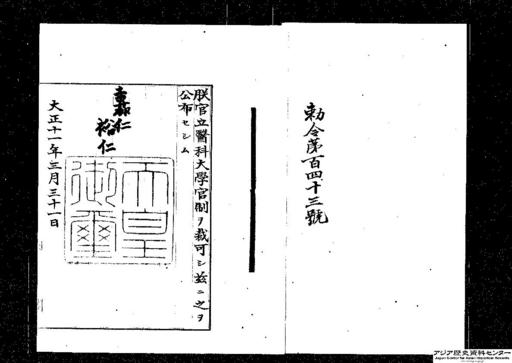 勅令第百四十三號
朕官立醫科大學官制ヲ裁可シ玆ニ之ヲ
公布セシム
嘉仁
裕仁
天皇
御璽
大正十一年三月三十一日
アジア歴史資料センター
Japan Center for Asian Historical Records